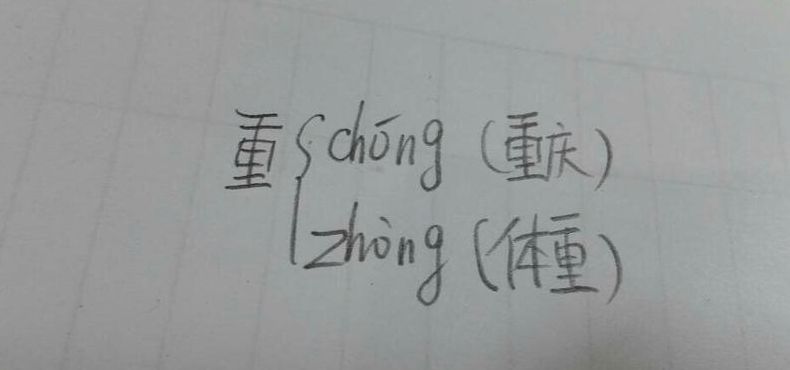 重{chōng(重庆)
zhòng(体重)